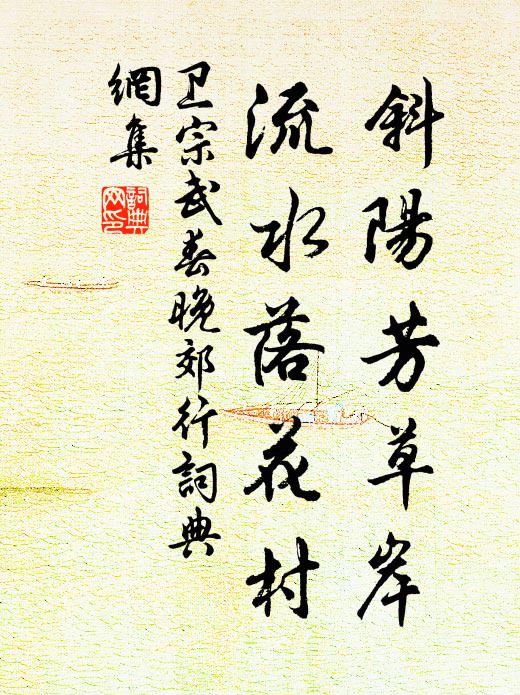 斜陽芳草岸
流水落花村
卫宗武春晚郊行詞典
網集
詞典
网印